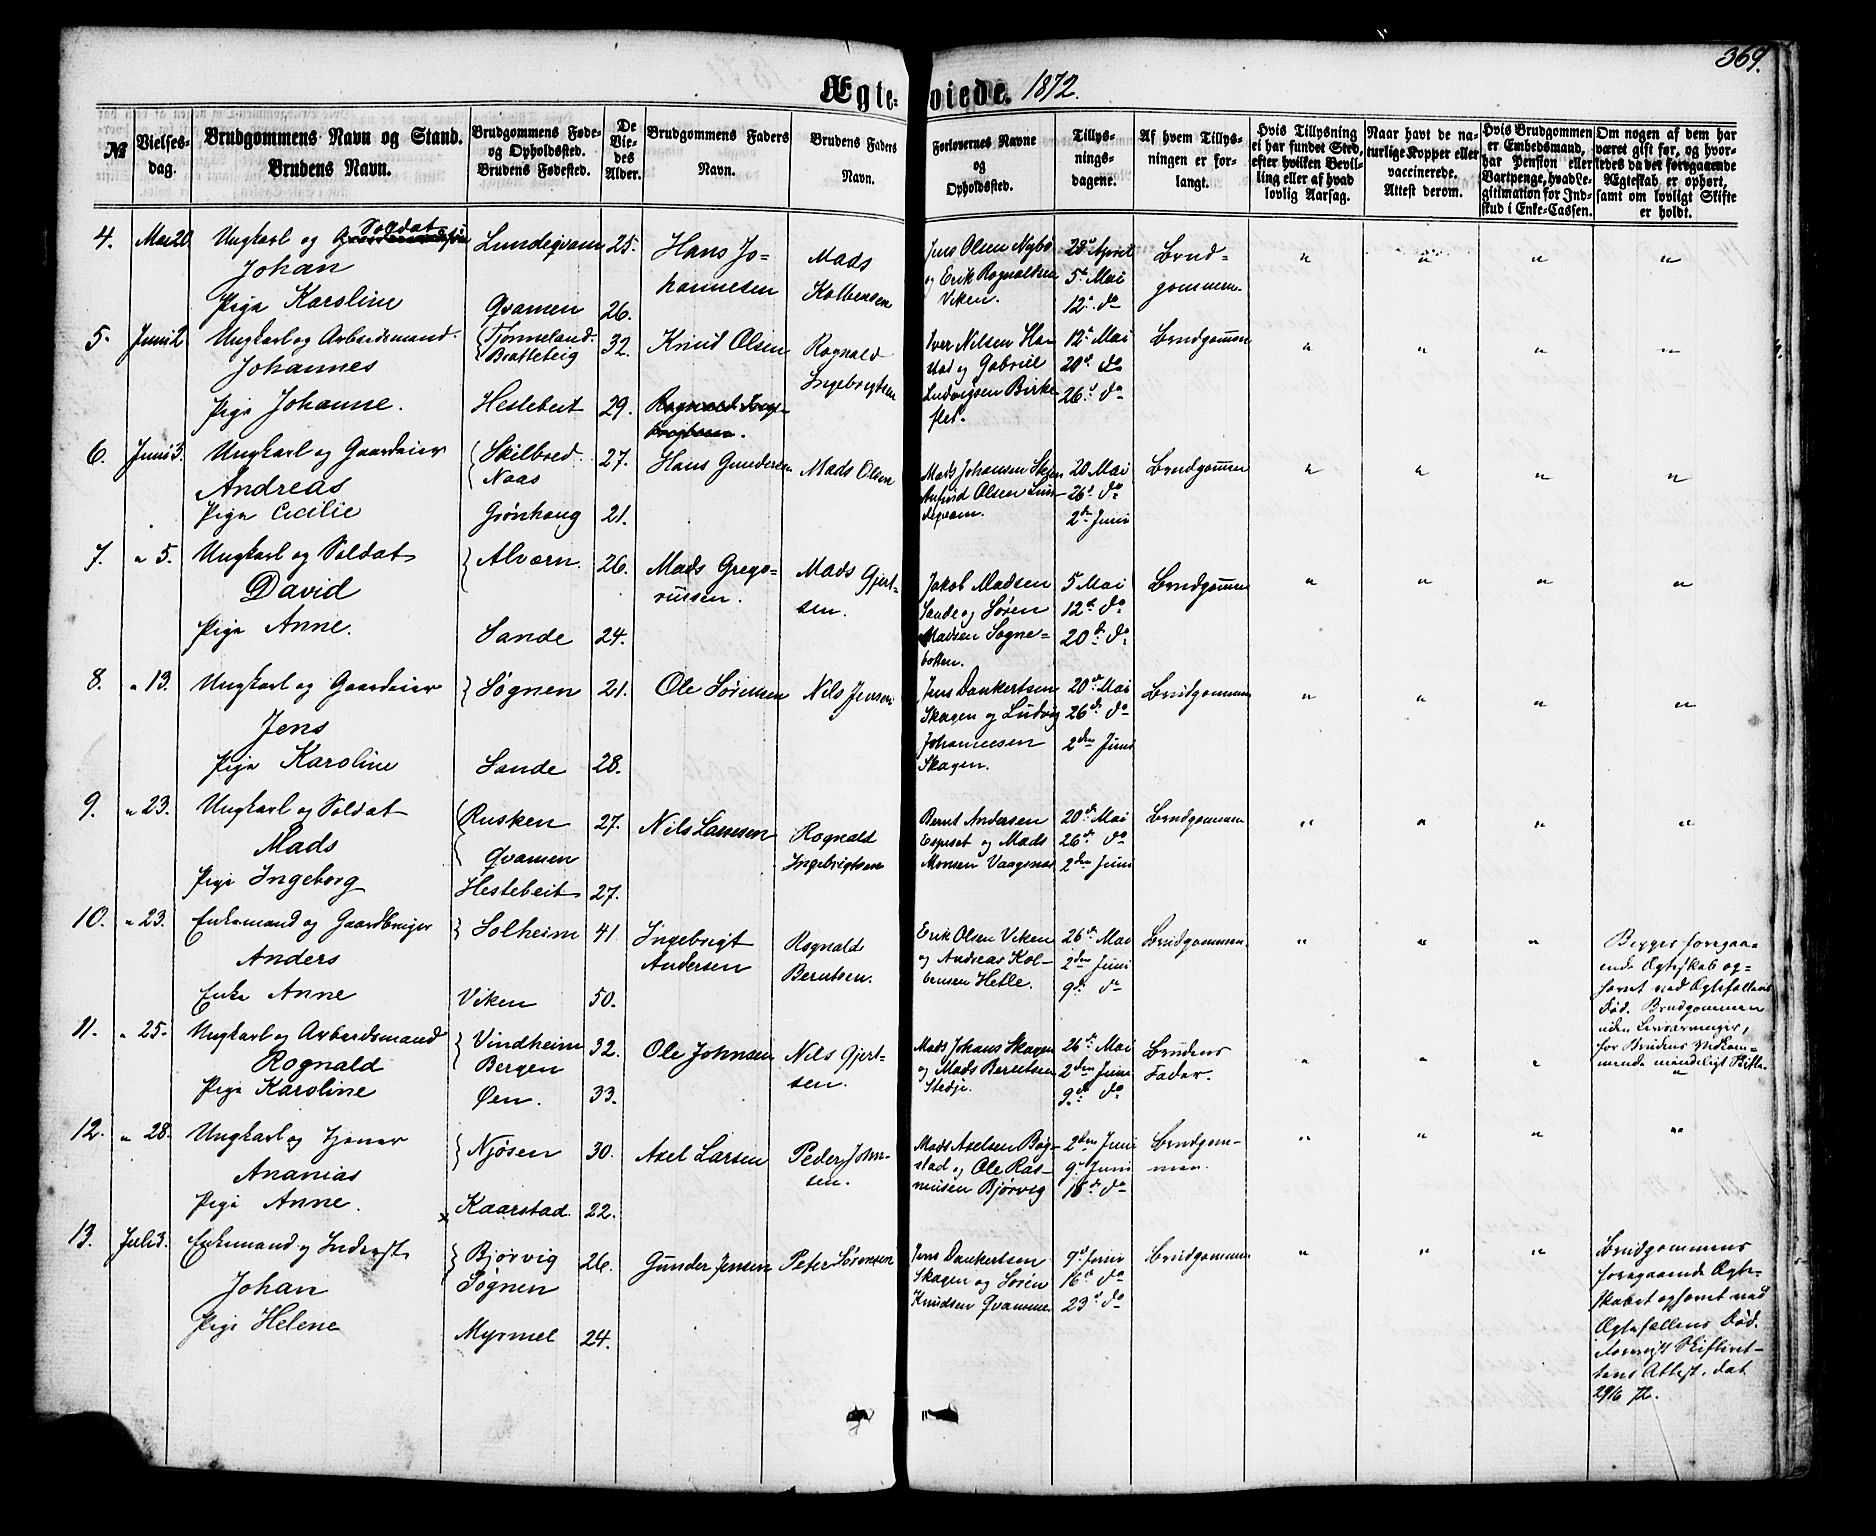 369.
Ægteviede. 1872.
№
Vielsesdag.
Brudgommens Navn og Stand.
Brudens Navn.
Brudgommens Føde- og Opholdssted.
Brudens Fødested.
De Viedes Alder.
Brudgommens Faders Navn.
Brudens Faders Navn.
Forlovernes Navne og Opholdssted.
Tillysningsdagene.
Af hvem Tillysningen er forlangt.
Hvis Tillysning ei har fundet Sted, efter hvilken Bevilling eller af hvad lovlig Aarsag.
Naar havt de naturlige Kopper eller vaccinerede. Attest derom.
Hvis Brudgommen er Embedsmand, har Pension eller Vartpenge, hvad Legitimation for Indskud i Enke-Cassen.
Om nogen af dem har været gift før, og hvorledes da det foregaaende Ægteskab er ophørt, samt om lovligt Skifte er holdt.
4. Mai 20 Ungkarl og Soldat Lundeqvam 25. Hans Jo- Mads Jens Olsen Nybø 28d April Brud- " " " "
Johan hannesen Kolbensen og Erik Rognaldsen 5te Mai gommen.
Pige Karoline Qvamen 26. Viken. 12te do
5. Juni 2 Ungkarl og Arbeidsmand Tjønneland 32. Knud Olsen Rognald Iver Nilsen 12te Mai Brudgommen " " " "
Johannes Brattebeig Ingebrigtsen og Gabriel 20de do
Pige Johanne. Hestebeit 29. Ludvigsen Birke- 26d do
flet.
6. Juni 3. Ungkarl og Gaardeier Skilbred 27. Hans Gundersen Mads Olsen Mads Johansen 20 Mai Brudgommen " " " "
Andreas Naas Olsen Lun- 26d do
Pige Cecilie Grönhaug 21. deqvam. 2den Juni
7. " 5. Ungkarl og Soldat Alværn 26. Mads Grego- Mads Gjert- Jakob Madsen 5 Mai Brudgommen " " " "
David riussen. sen. Sande og Sören 12te do
Pige Anne. Sande 24. Madsen Sogne- 20de do
botten.
8. " 13. Ungkarl og Gaardeier Sögnen 21. Ole Sörensen Nils Jensen Jens Dankertsen 20de Mai Brudgommen " " " "
Jens Skagen og Ludvig 26de do
Pige Karoline Sande 28. Johannesen 2den Juni
Skagen.
9. " 23. Ungkarl og Soldat Rusken 27. Nils Lassesen Rognald Bernt Andersen 20de Mai Brudgommen " " " "
Mads Qvamen Ingebrigtsen Espeset og Mads 26de do
Pige Ingeborg Hestebeit 27. Monsen Vaagsnæs 2den Juni
10. " 23. Enkemand og Gaardbruger Solheim 41 Ingebrigt Rognald Erik Olsen Viken 26de Mai Brudgommen " " " Begges foregaa-
Anders Andersen Berntsen. og Andreas Kol- 2den Juni ende Ægteskab op-
Enke Anne Viken 50. bensen Hetle. 9de do hørt ved Ægtefællens
Död. Brudgommen
uden
for Brudens Vedkom-
mende
11. " 25. Ungkarl og Arbeidsmand Vindheim 32. Ole Johnsen Nils Gjert- Mads Johans Skagen 26de Mai Brudens " " " "
Rognald Bergen sen. og Mads Berentsen 2den Juni Fader.
Pige Karoline Øen. 33. Stedje. 9de do
12. " 28. Ungkarl og Tjener Njösen 30. Axel Larsen Peder John- Mads Axelsen Bøg- 2den Juni Brudgom- " " " "
Ananias sen. stad og Ole Ras- 9d Juni men.
Pige Anne. x Kaarstad 22. mussen Bjørvig 16de do
13. Juli 3. Enkemand og Inderst Bjørvig 26. Gunder Jensen Peter Sörensen Jens Dankertsen 9d Juni Brudgommen " " " Brudgommens
Johan Sögnen Skagen og Sören 16d do foregaaende Ægte-
Pige Helene Myrmel 24. Knudsen Qvamme. 23d do skabet ophøret ved
Ægtefællens Död.
Skifteret-
tens Attest. dat
29/6 72.